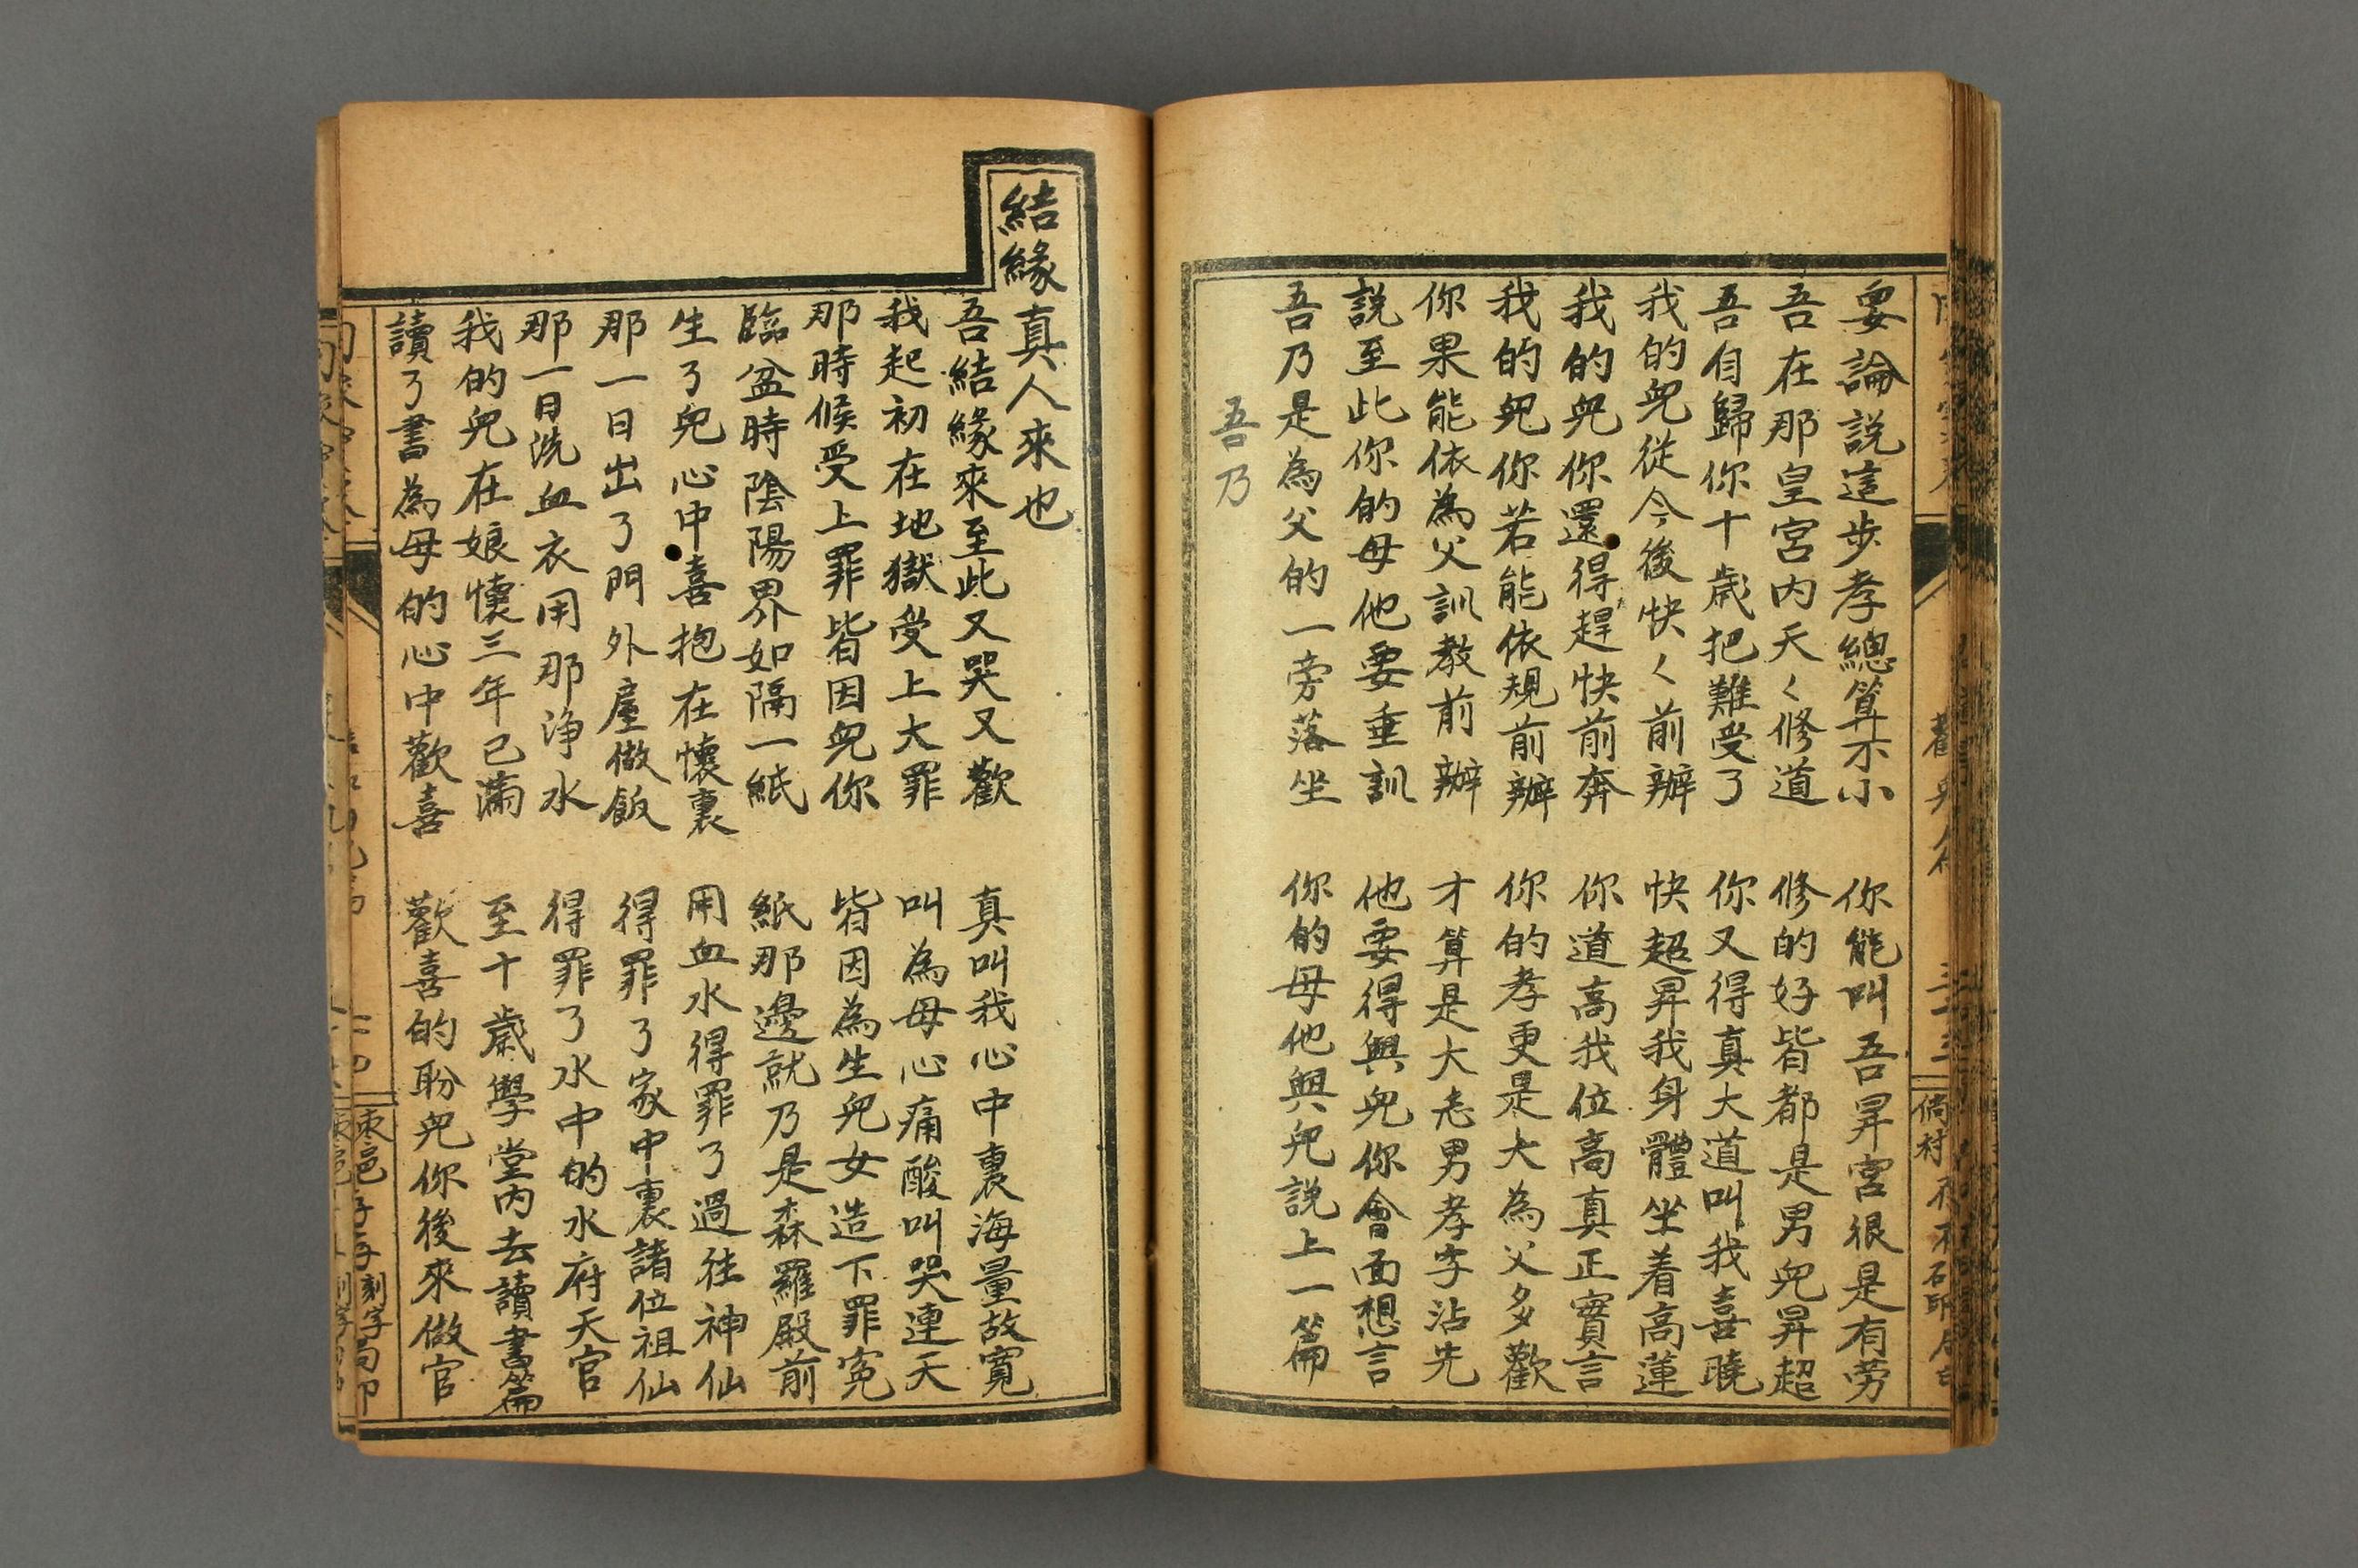 要論說這步孝總算不小 你能叫吾昇宮很是有勞
吾在那皇宮内天〻修道 修的好皆都是男兒昇超
吾自歸你十歲把難受了 你又得真大道叫我喜曉
我的兒從今後快〻前辦 快超昇我身體坐着高蓮
我的兒你還得趕快前奔 你道高我位高真正實言
我的兒你若能依規前辦 你的孝更是大為父多歡
你果能依為父訓教前辦 才算是大志男孝字沾先
說至此你的母他要垂訓 他要得與兒你會面想言
吾乃是為父的一旁落坐 你的母他與兒說上一篇
吾乃
結緣真人來也
吾結緣來至此又哭又歡 真叫我心中裏海量故寬
我起初在地獄受上大罪 叫為母心痛酸叫哭連天
那時候受上罪皆因兒你 皆因為生兒女造下罪冤
臨盆時陰陽界如隔一紙 紙那邊就乃是森羅殿前
生了兒心中喜抱在懷裏 用血水得罪了過往神仙
那一日出了門外屋做飯 得罪了家中裏諸位祖仙
那一日洗血衣用那净水 得罪了水中的水府天官
我的兒在娘懷三年已滿 至十歲學堂内去讀書篇
讀了書為母的心中歡喜 歡喜的盼兒你後來做官